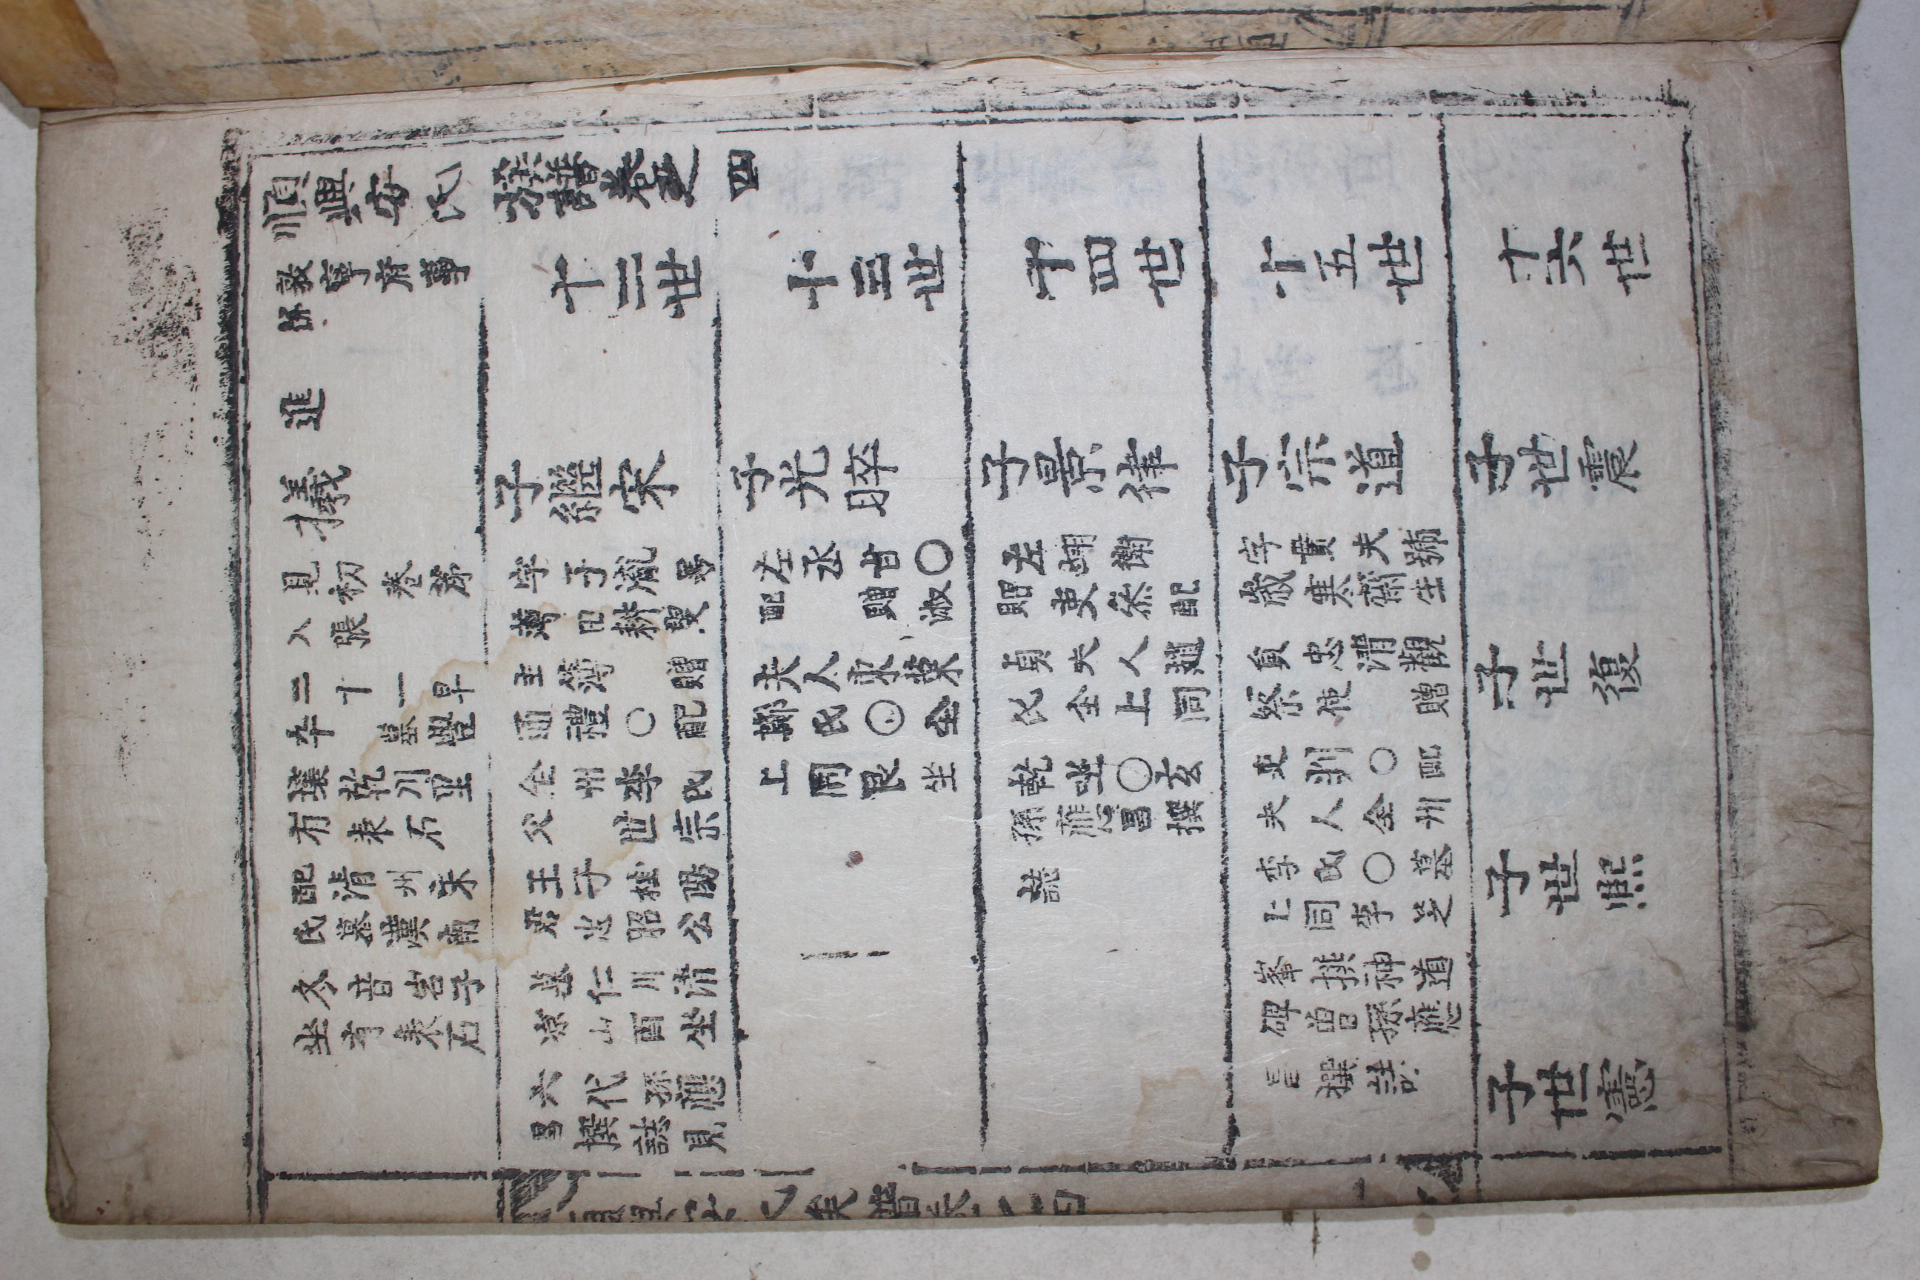 順興安氏族譜卷之四
敦寧府事
進
十二世
十三世
十四世
十五世
十六世
㩘
見初卷苐
入張
二十一早
卒 墓豐
壤乾川里
有表石
配淸州宋
氏墓漢南
冬音岩子
坐有表石
子繼宋
字子胤号
薄田耕叟
主簿 贈
通禮○配
全州李氏
父 世宗
王子桂陽
君忠昭公
墓仁川淸
凉山酉坐
六代孫應
昌撰誌見
子光晬
左丞甘○
配 贈淑
夫人東萊
鄭氏○仝
上同艮坐
子景律
左翊衛
贈吏叅配
貞夫人趙
氏仝上同
乾坐○玄
孫應昌撰
誌
子宗道
字貫夫號
歲寒齋生
貟忠淸觀
察使 贈
吏判○配
夫人全州
李氏○墓
上同李芝
峯撰神道
碑曾孫應
昌撰誌
子世震
子世復
子世熙
子世憲
順興安氏族譜卷之四